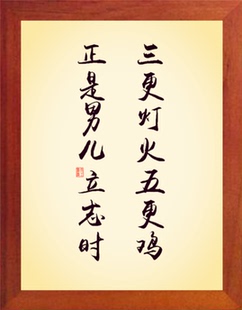 三更灯火五更鸡
正是男儿立志时